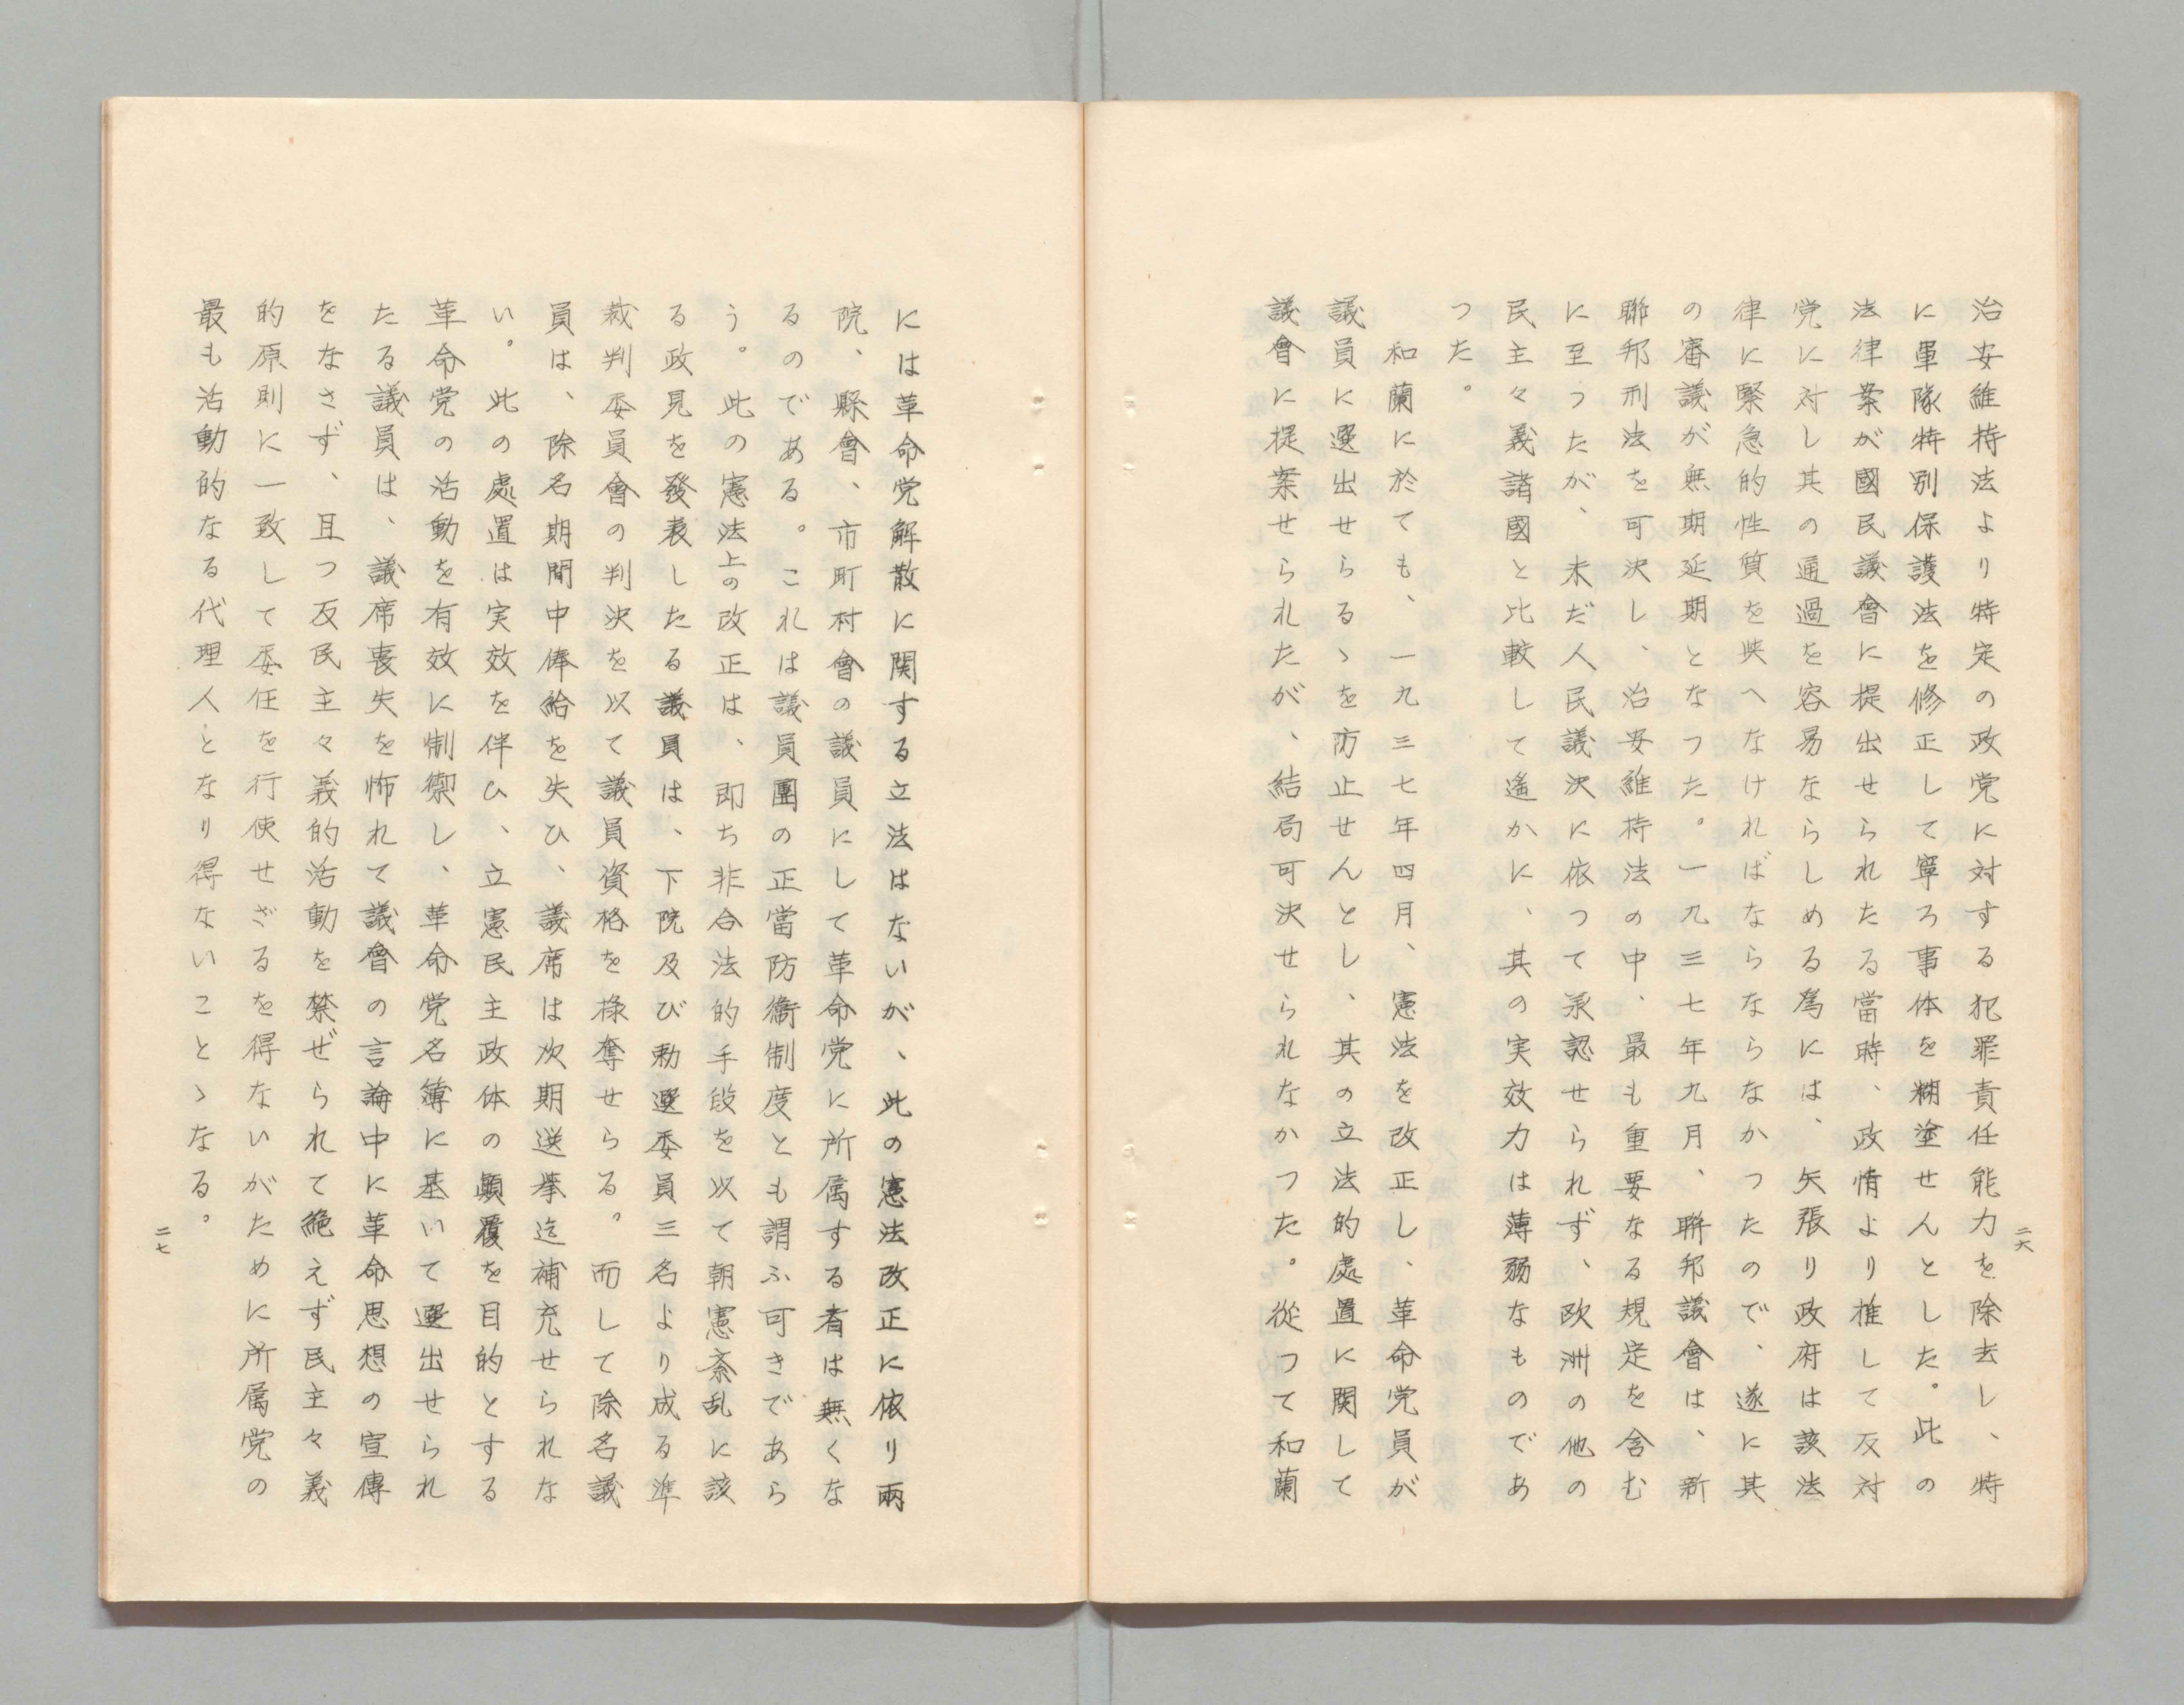 治安維持法より特定の政党に対する犯罪責任能力を除去し、特
に軍隊特別保護法を修正して寧ろ事体を糊塗せんとした。此の
法律案が國民議會に提出せられたる當時、政情より推して反対
党に対し其の通過を容易ならしめる為には、矢張り政府は該法
律に緊急的性質を與へなければならならなかつたので、遂に其
の審議が無期延期となつた。一九三七年九月、聯邦議會は、新
聯邦刑法を可決し、治安維持法の中、最も重要なる規定を含む
に至つたが、未だ人民議決に依つて承認せられず、欧洲の他の
民主々義諸國と比較して遙かに、其の実效力は薄弱なものであ
つた。
和蘭に於ても、一九三七年四月、憲法を改正し、革命党員が
議員に選出せらるゝを防止せんとし、其の立法的處置に関して
議會に提案せられたが、結局可決せられなかつた。從つて和蘭
二六
には革命党解散に関する立法はないが、此の憲法改正に依り兩
院、縣會、市町村會の議員にして革命党に所属する者は無くな
るのである。これは議員團の正當防衞制度とも謂ふ可きであら
う。此の憲法上の改正は、即ち非合法的手段を以て朝憲紊乱に該
る政見を發表したる議員は、下院及び勅選委員三名より成る準
裁判委員會の判決を以て議員資格を褫奪せらる。而して除名議
員は、除名期間中俸給を失ひ、議席は次期選挙迄補充せられな
い。此の處置は実效を伴ひ、立憲民主政体の顛覆を目的とする
革命党の活動を有效に制禦し、革命党名簿に基いて選出せられ
たる議員は、議席喪失を怖れて議會の言論中に革命思想の宣傳
をなさず、且つ反民主々義的活動を禁ぜられて絶えず民主々義
的原則に一致して委任を行使せざるを得ないがために所属党の
最も活動的なる代理人となり得ないことゝなる。
二七